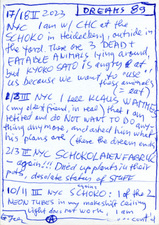 17/18 II 2023 DREAMS 89
NYC I am w/ CHC at the
SCHOKO in Heidelberg, outside in
the yard. There are 3 DEAD &
EATABLE ANIMALS lying around,
but KYOKO SATO is angry at
us because we want to use
they animals
(= eat)
NYC I see KLAUS
(my old friend, in red) that I am
retired and DO NOT WANT TO DO any-
thing any more, and asked him what
his plans are (here the dream ends)
2/3 III NYC SCHOKOLADENFABRIK
- again!!! Dried up plants in their
pots, desolate states of STUFF
10/11 III NYC SCHOKO: 1 of the 2
NEON tubes in my makeshift ceiling
light does not work, I am